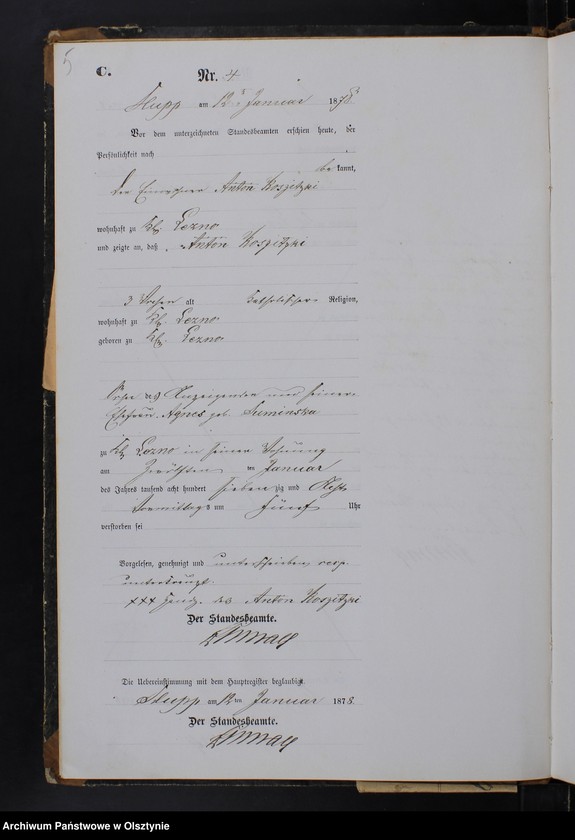 5
C.
Nr. 4
Slupp am 12ten Januar 1878
Vor dem unterzeichneten Standesbeamten erschien heute, der
Persönlichkeit nach
bekannt,
der Einwohner Anton Koszitzki
wohnhaft zu Kl. Lezno
und zeigte an, daß Anton Koszitzki
3 Wochen alt katholischer Religion,
wohnhaft zu Kl. Lezno
geboren zu Kl. Lezno
Sohn des Anzeigenden und seiner
Ehefrau Agnes geb. Suminska
zu Kl. Lezno in seiner Wohnung
am zwölften Januar
des Jahres tausend acht hundert siebenzig und Acht
Vormittags um fünf Uhr
verstorben sei
Vorgelesen, genehmigt und unterschrieben resp.
unterkreuzt.
+++ Handz. des Anton Koszitzki
Der Standesbeamte.
Die Uebereinstimmung mit dem Hauptregister beglaubigt.
Slupp am 12ten Januar 1878.
Der Standesbeamte.
Archiwum Państwowe w Olsztynie